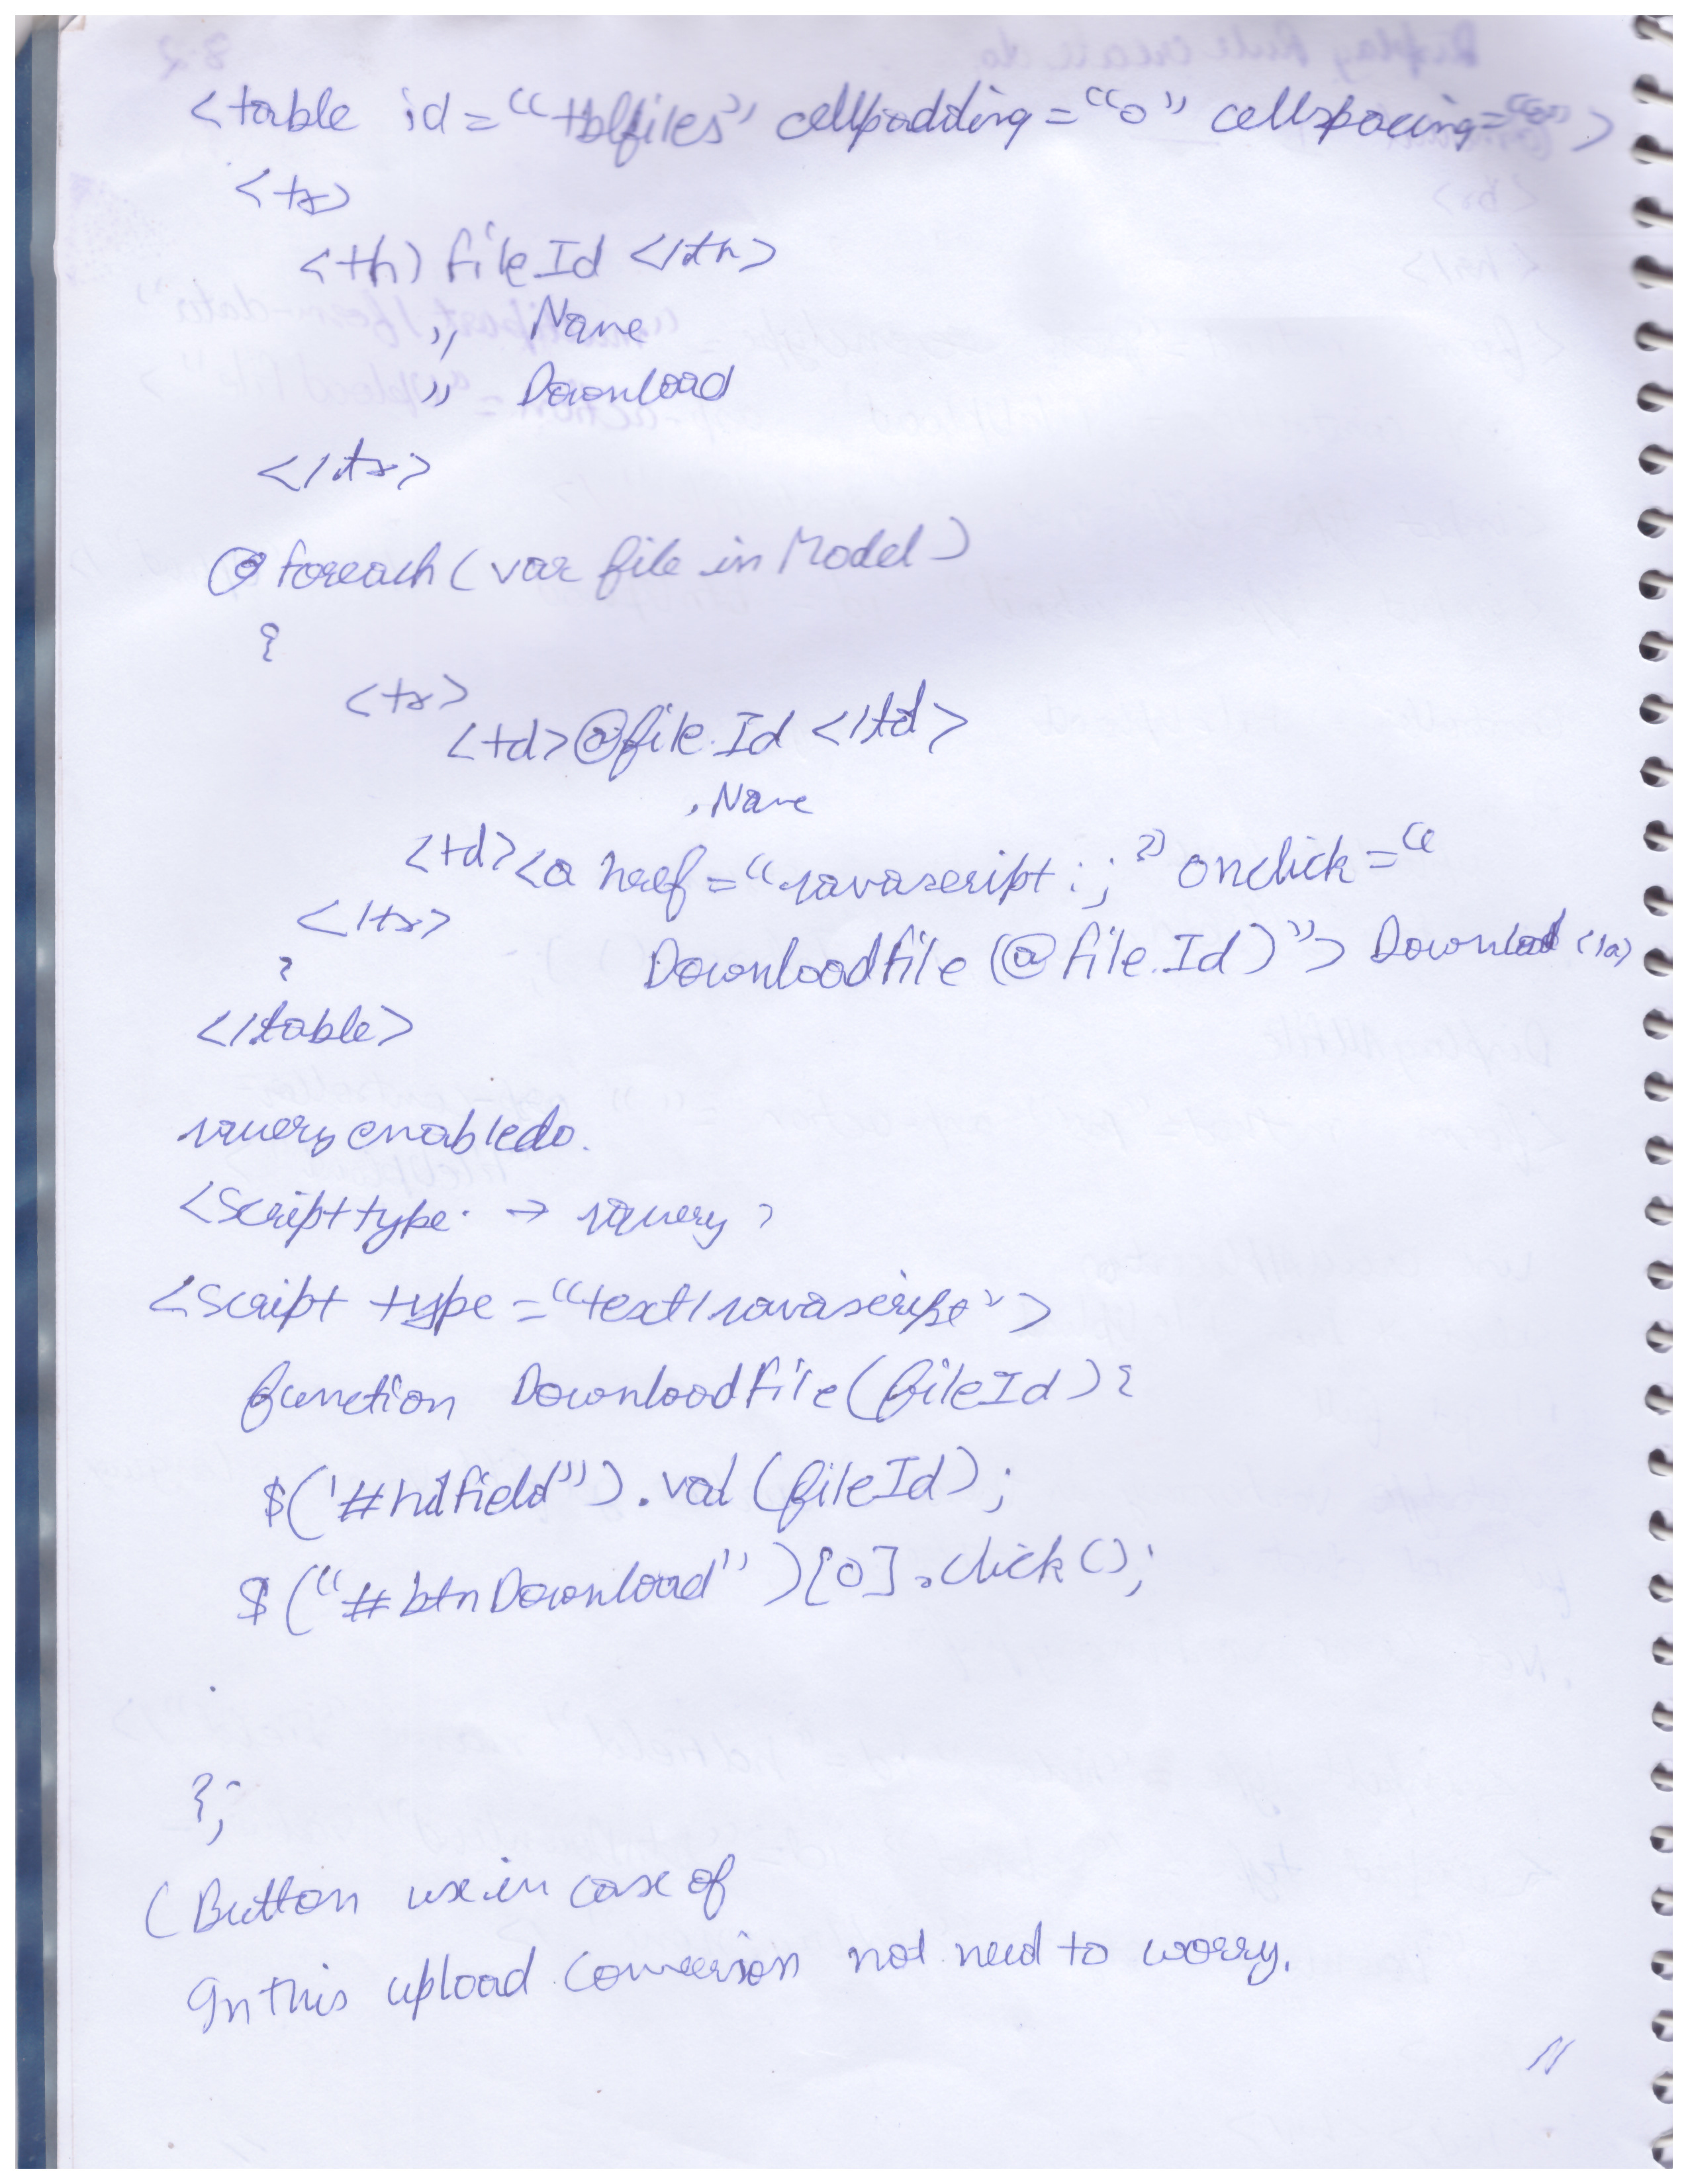 <table id="tblfiles" cellpadding="0" cellspacing="0">
<tr>
<th> fileId </th>
,, Name
,, Download
</tr>
@foreach (var file in Model)
{
<tr>
<td>@file.Id </td>
.Name
<td><a href="javascript:;" onclick="
</tr>
DownloadFile(@file.Id)"> Download </a>
}
</table>
jquery enabledo.
<script type. → jquery >
<script type="text/javascript">
function DownloadFile(fileId){
$('#hdfield").val(fileId);
$("#btnDownload")[0].click();
};
(Button use in case of
In this upload conversion not need to worry.